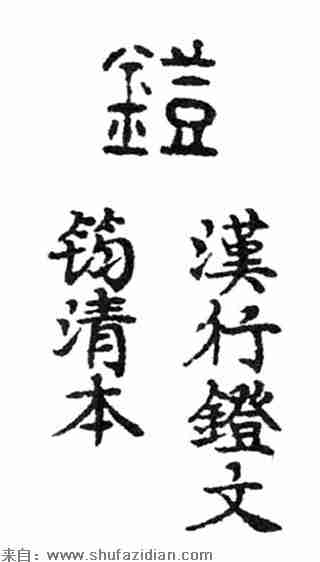 鐙
漢行鐙文
筠清本
来自：www.shufazidian.com